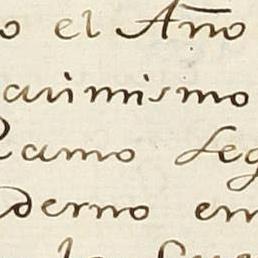 o el Año
asimismo
Ramo Seg
derno em